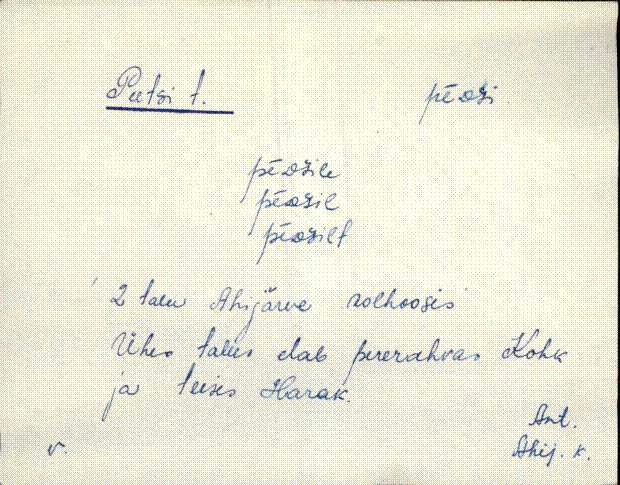 Peetsi t. pēᴅзi
pēᴅзile
pēᴅзil
pēᴅзilt
2 talu Ahijärve kolhoosis
Ühes talus elab pererahvas Kohk
ja teises Harak.
Ant.
Ahij. k.
v.